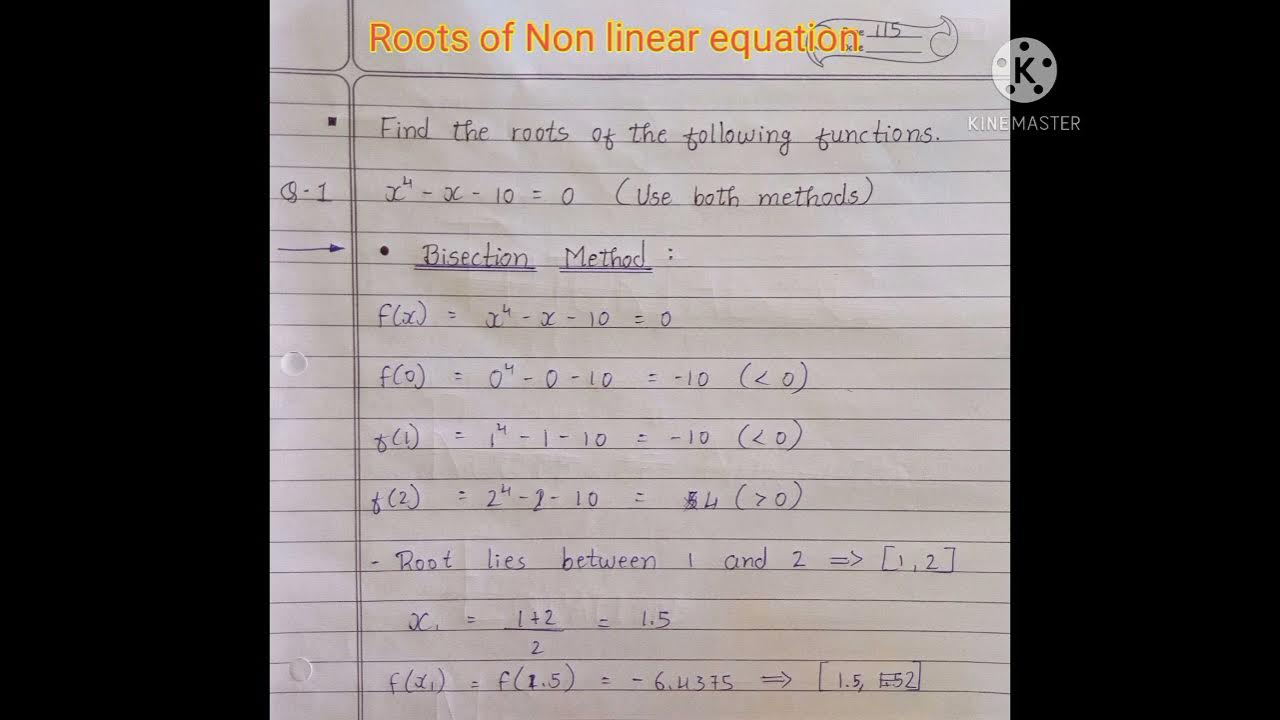 Roots of Non linear equation
115
KINEMASTER
▪ Find the roots of the following functions.
Q-1 x⁴ - x - 10 = 0 (Use both methods)
→ • Bisection Method :
f(x) = x⁴ - x - 10 = 0
f(0) = 0⁴ - 0 - 10 = -10 (< 0)
f(1) = 1⁴ - 1 - 10 = -10 (< 0)
f(2) = 2⁴ - 2 - 10 = 4 (> 0)
- Root lies between 1 and 2 => [1, 2]
x₁ = 1+2 = 1.5
2
f(x₁) = f(1.5) = - 6.4375 => [1.5, 2]